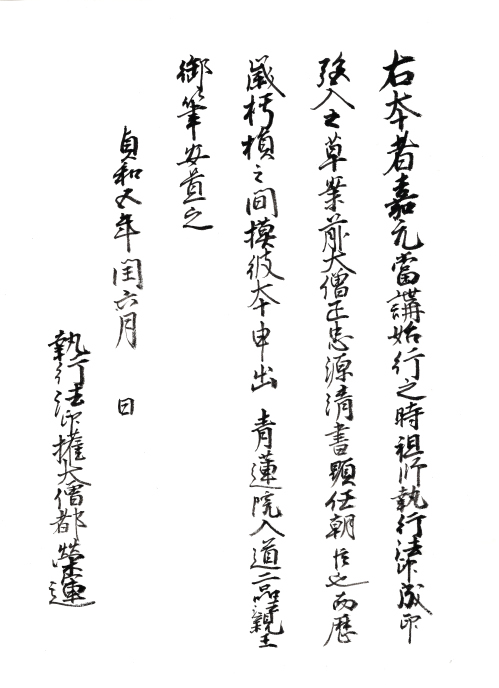 右本者嘉元當講始行之時祖師執行法印成印
強入之草案前大僧正忠源清書顕任朝臣也而歴
歳朽損之間摸彼本申出 青蓮院入道二品親王
御筆安置之
貞和五年閏六月 日
執行法印権大僧都榮運